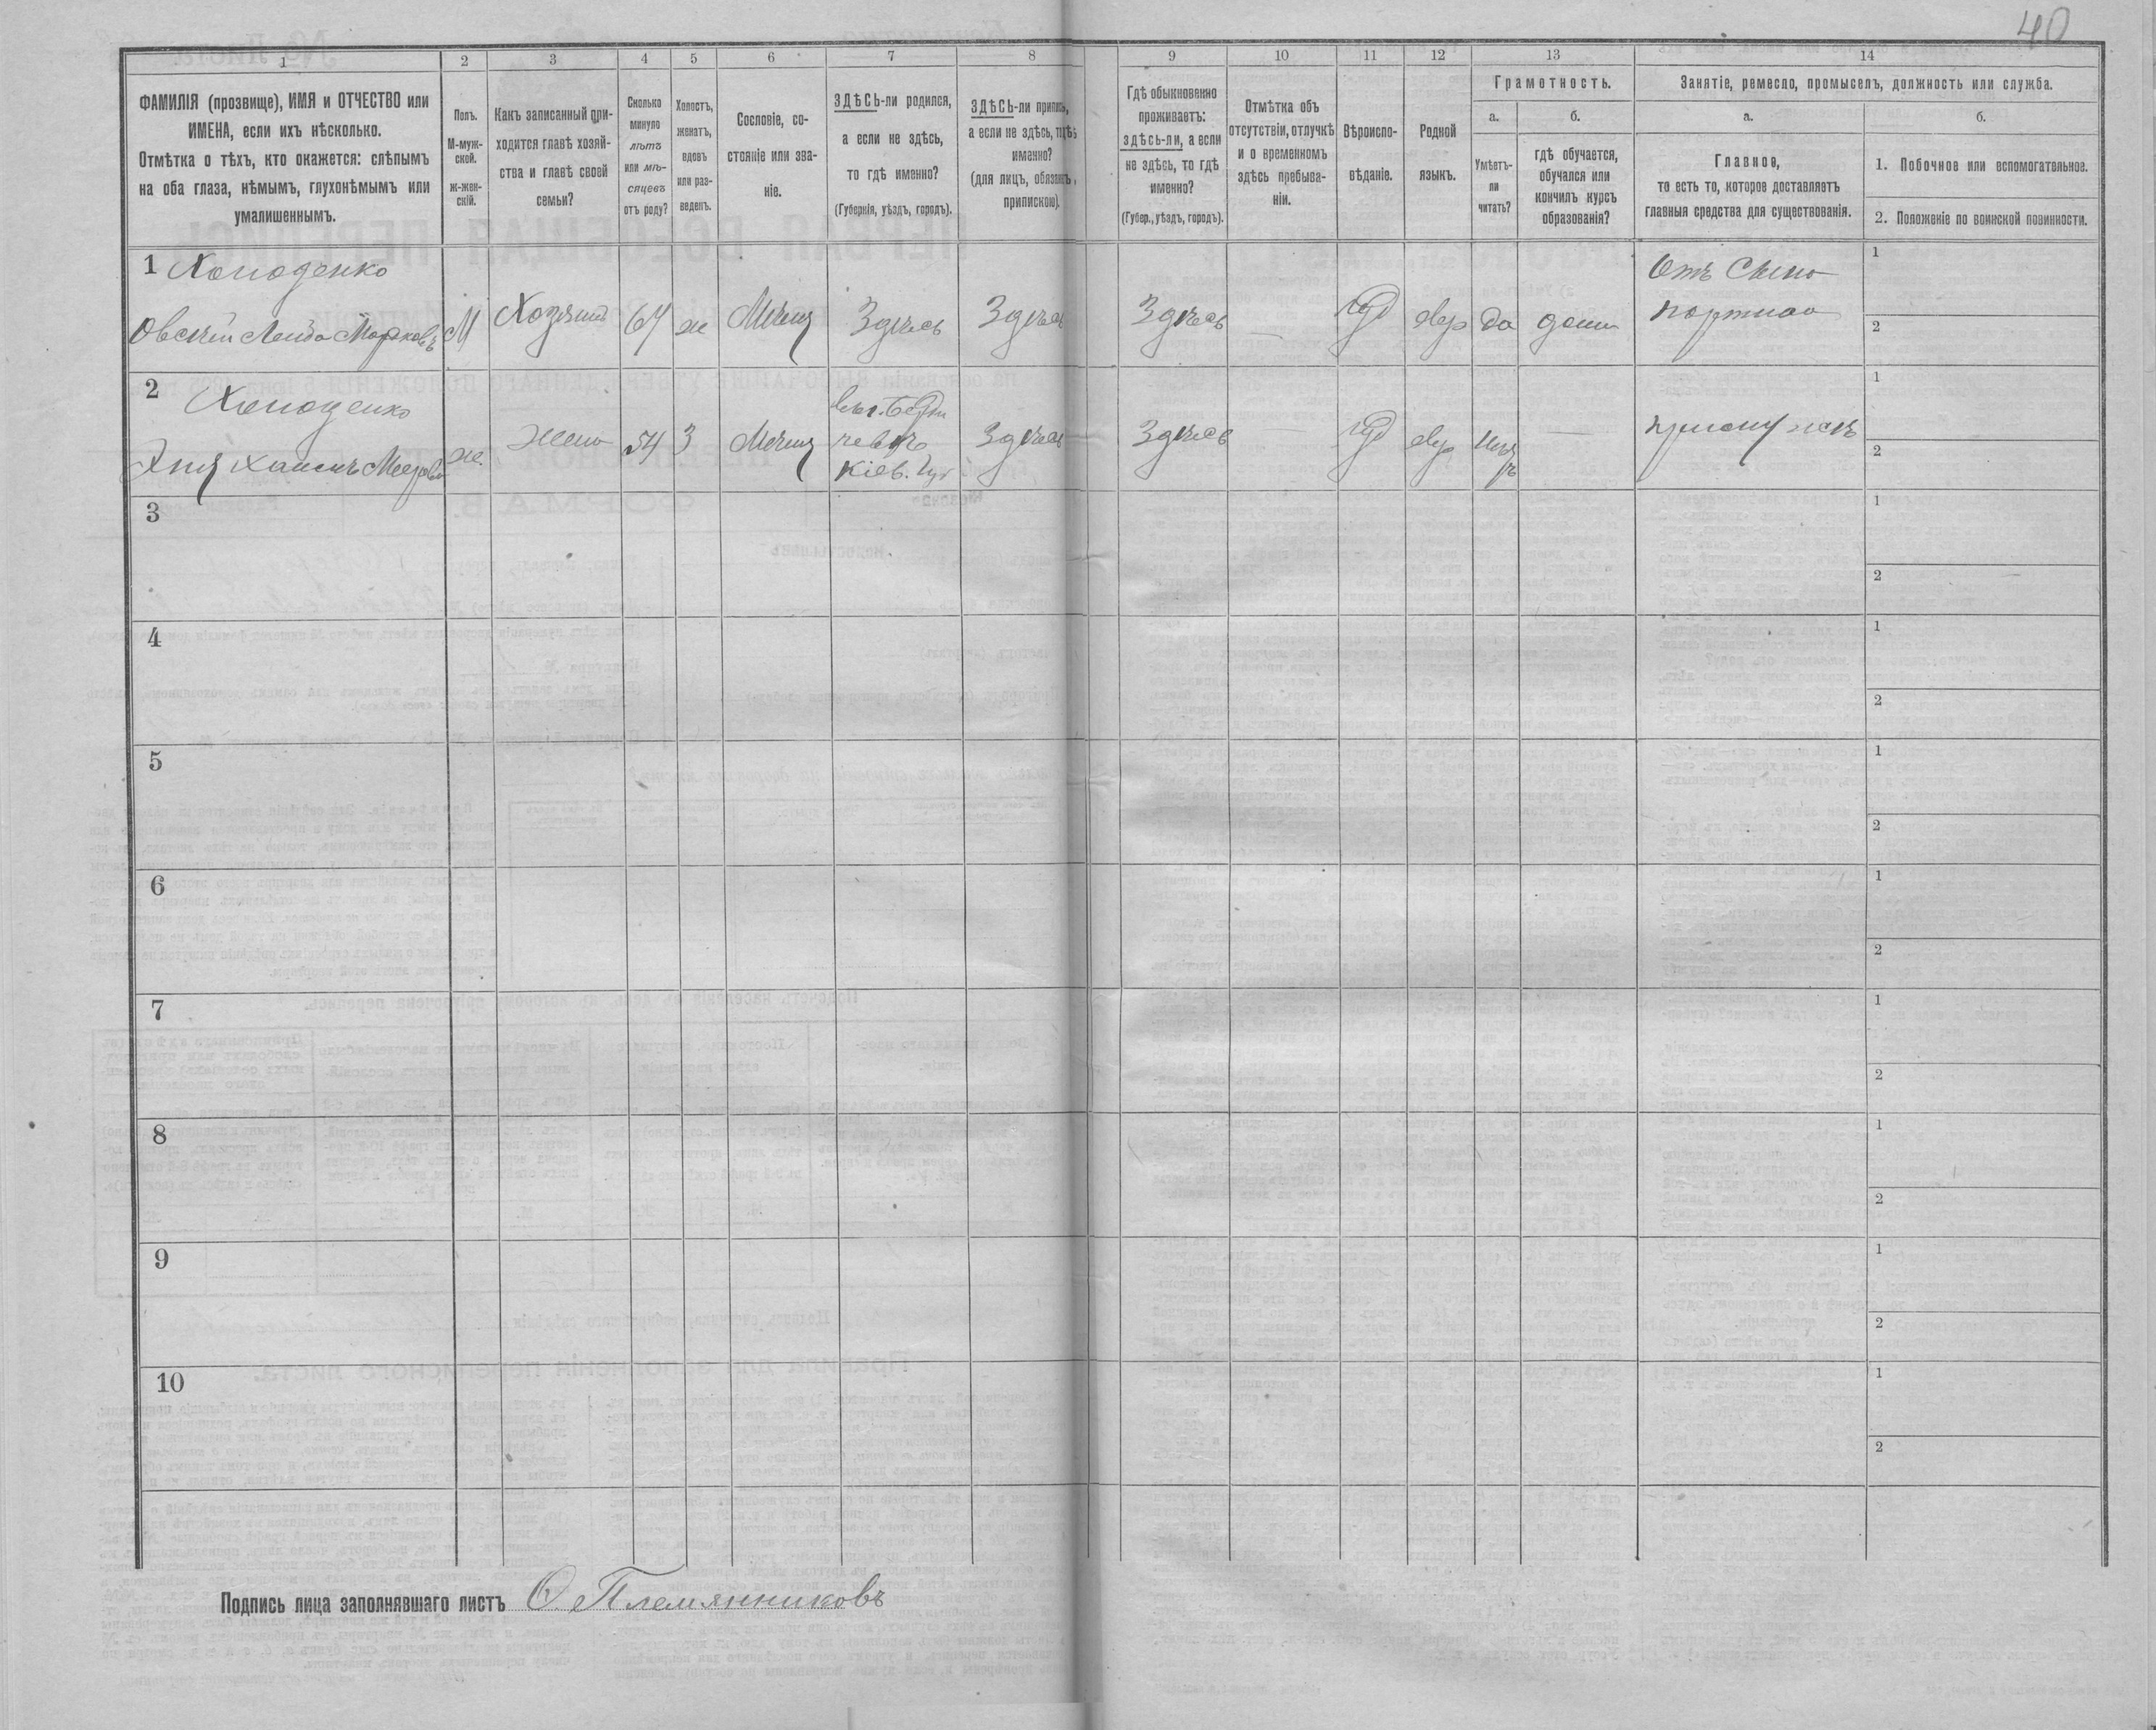 40
1
2
3
4
5
6
7
8
9
10
11
12
13
14
ФАМИЛІЯ (прозвище), ИМЯ и ОТЧЕСТВО или
ИМЕНА, если ихъ нѣсколько.
Отмѣтка о тѣхъ, кто окажется: слѣпымъ
на оба глаза, нѣмымъ, глухонѣмымъ или
умалишеннымъ.
Полъ.
М-муж-
ской.
ж-жен-
скій.
Какъ записанный при-
ходится главѣ хозяй-
ства и главѣ своей
семьи?
Сколько
минуло
лѣтъ
или мѣ-
сяцевъ
отъ роду?
Холостъ,
женатъ,
вдовъ
или раз-
веденъ.
Сословіе, со-
стояніе или зва-
ніе.
ЗДѢСЬ-ли родился,
а если не здѣсь,
то гдѣ именно?
(Губернія, уѣздъ, городъ).
ЗДѢСЬ-ли
а если не здѣсь,
именно?
(для лицъ,
припискою).
Гдѣ обыкновенно
проживаетъ:
здѣсь-ли, а если
не здѣсь, то гдѣ
именно?
(Губер., уѣздъ, городъ).
Отмѣтка объ
отсутствіи, отлучкѣ
и о временномъ
здѣсь пребыва-
ніи.
Вѣроиспо-
вѣданіе.
Родной
языкъ.
Грамотность.
а.
Умѣетъ-
ли
читать?
б.
гдѣ обучается,
обучался или
кончилъ курсъ
образованія?
Занятіе, ремесло, промыселъ, должность или служба.
а.
Главное,
то есть то, которое доставляетъ
главныя средства для существованія.
б.
1. Побочное или вспомогательное.
2. Положеніе по воинской повинности.
1 Холоденко
овскій Лейба Морковъ
М
Хозяинъ
64
ж
Мѣщан
Здѣсь
Здѣсь
Здѣсь
—
Іуд
Евр
да
дома
Отъ Сына
портной
1
2
2 Холоденко
Мееров
ж.
Жена
54
З
Мѣщан
Кіев. Губ.
Здѣсь
Здѣсь
—
Іуд
Евр
—
при мужѣ
1
2
3
1
2
4
1
2
5
1
2
6
1
2
7
1
2
8
1
2
9
1
2
10
1
2
Подпись лица заполнявшаго листъ О. Племянниковъ